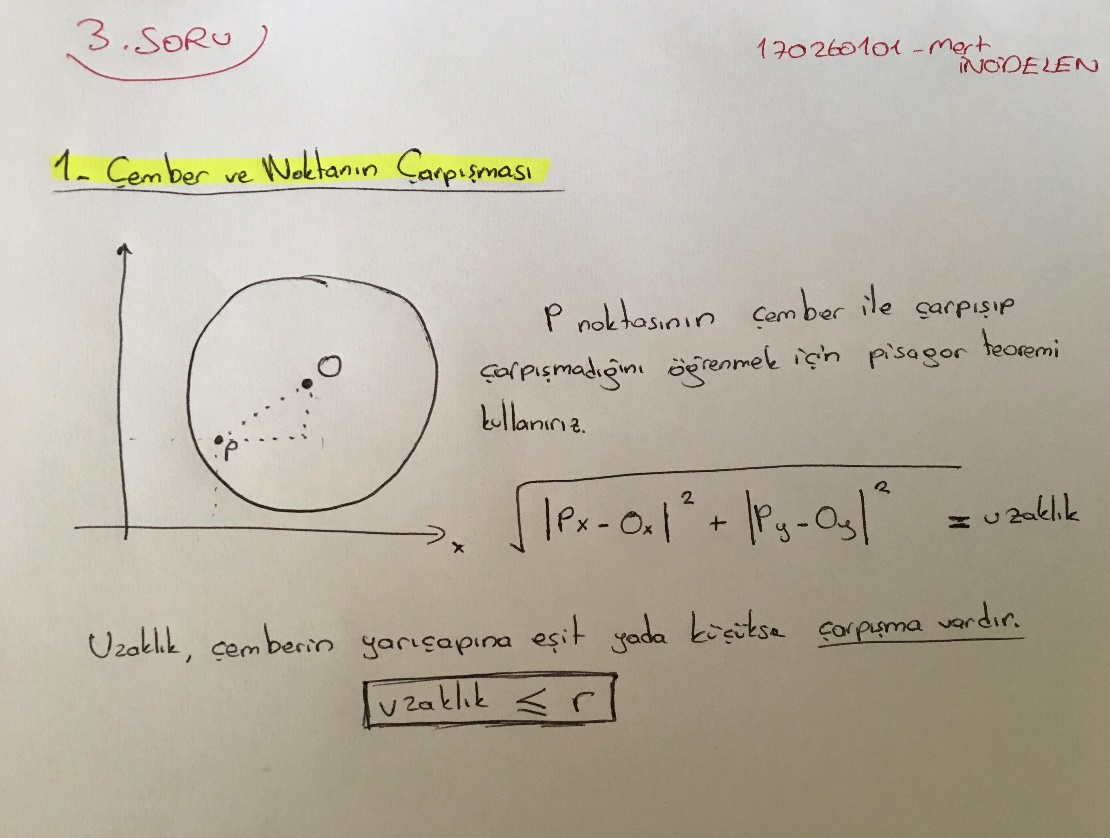 3. SORU
170260101 - Mert
İNCİDELEN
1- Çember ve Noktanın Çarpışması
O
P
x
P noktasının çember ile çarpışıp
çarpışmadığını öğrenmek için pisagor teoremi
kullanırız.
√|Px - Ox|² + |Py - Oy|² = uzaklık
Uzaklık, çemberin yarıçapına eşit yada küçükse çarpışma vardır.
uzaklık ≤ r